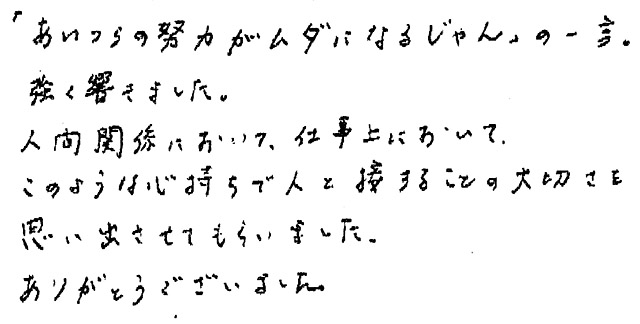 「あいつらの努力がムダになるじゃん」の一言。
強く響きました。
人間関係において、仕事上において、
このような心持ちで人と接することの大切さを
思い出させてもらいました。
ありがとうございました。